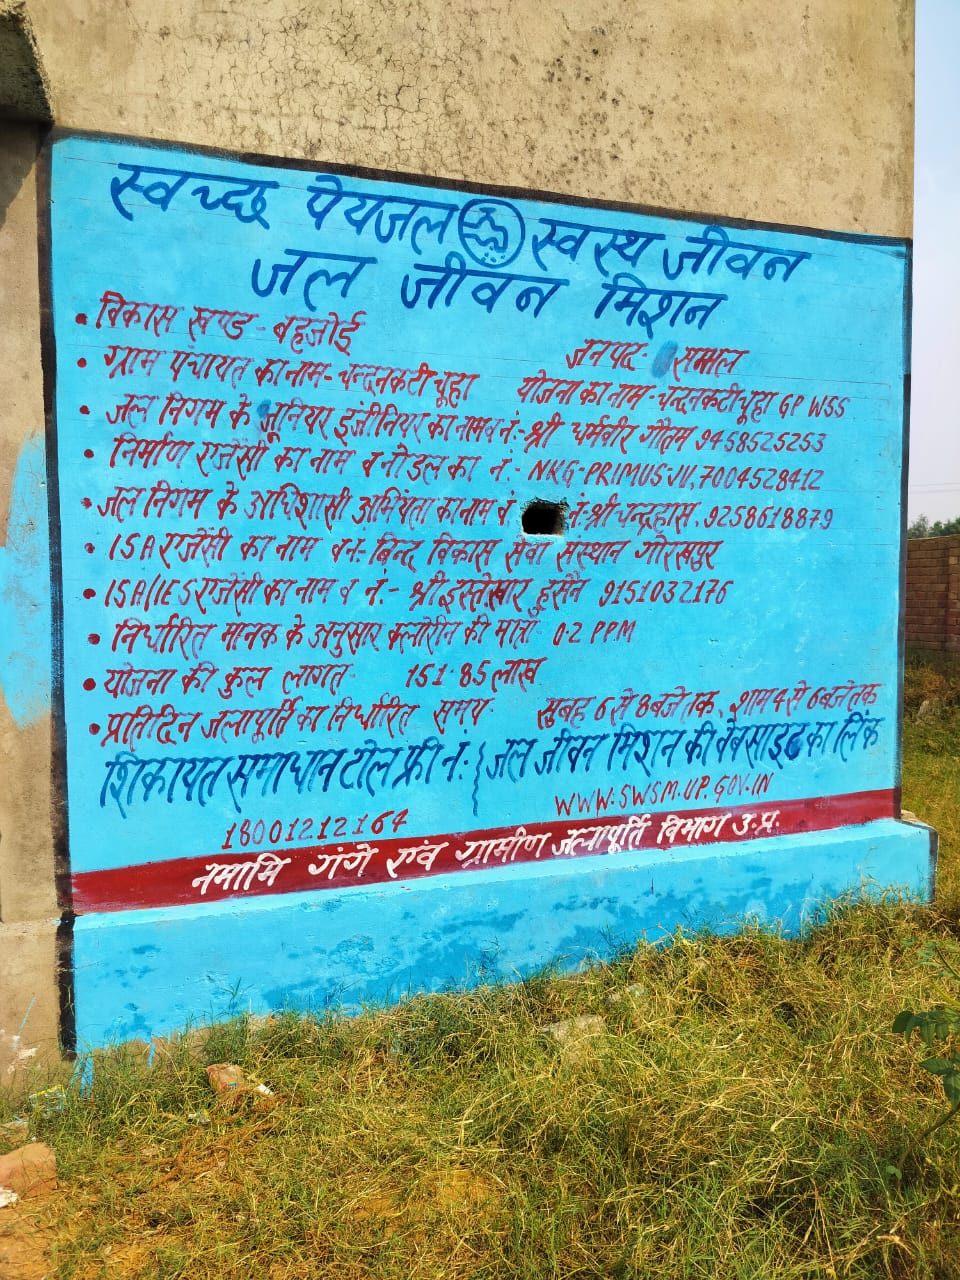 स्वच्छ पेयजल स्वस्थ जीवन
जल जीवन मिशन
• विकास खण्ड - बहजोई जनपद - सम्भल
• ग्राम पंचायत का नाम - चन्दनकटी चूहा योजना का नाम - चन्दनकटी चूहा GP WSS
• जल निगम के जूनियर इंजीनियर का नाम व नं:- श्री धर्मवीर गौतम 9458525253
• निर्माण एजेंसी का नाम व नोडल का नं:- NKG-PRIMUS-JV, 7004528412
• जल निगम के अधिशासी अभियंता का नाम व नं:- श्री चन्द्रहास, 9258618879
• ISA एजेंसी का नाम व नं:- बिन्द विकास सेवा संस्थान गोरखपुर
• ISA/IES एजेंसी का नाम व नं.- श्री इस्तेखार हुसैन 9151032176
• निर्धारित मानक के अनुसार क्लोरीन की मात्रा 0.2 PPM
• योजना की कुल लागत 151.85 लाख
• प्रतिदिन जलापूर्ति का निर्धारित समय सुबह 6 से 8 बजे तक, शाम 4 से 6 बजे तक
शिकायत समाधान टोल फ्री नं: जल जीवन मिशन की वेबसाइट का लिंक
18001212164 WWW.SWSM.UP.GOV.IN
नमामि गंगे एंव ग्रामीण जलापूर्ति विभाग उ.प्र.